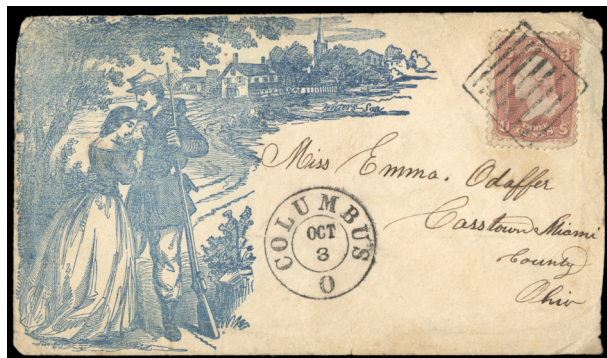 Miss Emma. Odaffer
Casstown Miami
County
Ohio
COLUMBUS
OCT
3
O